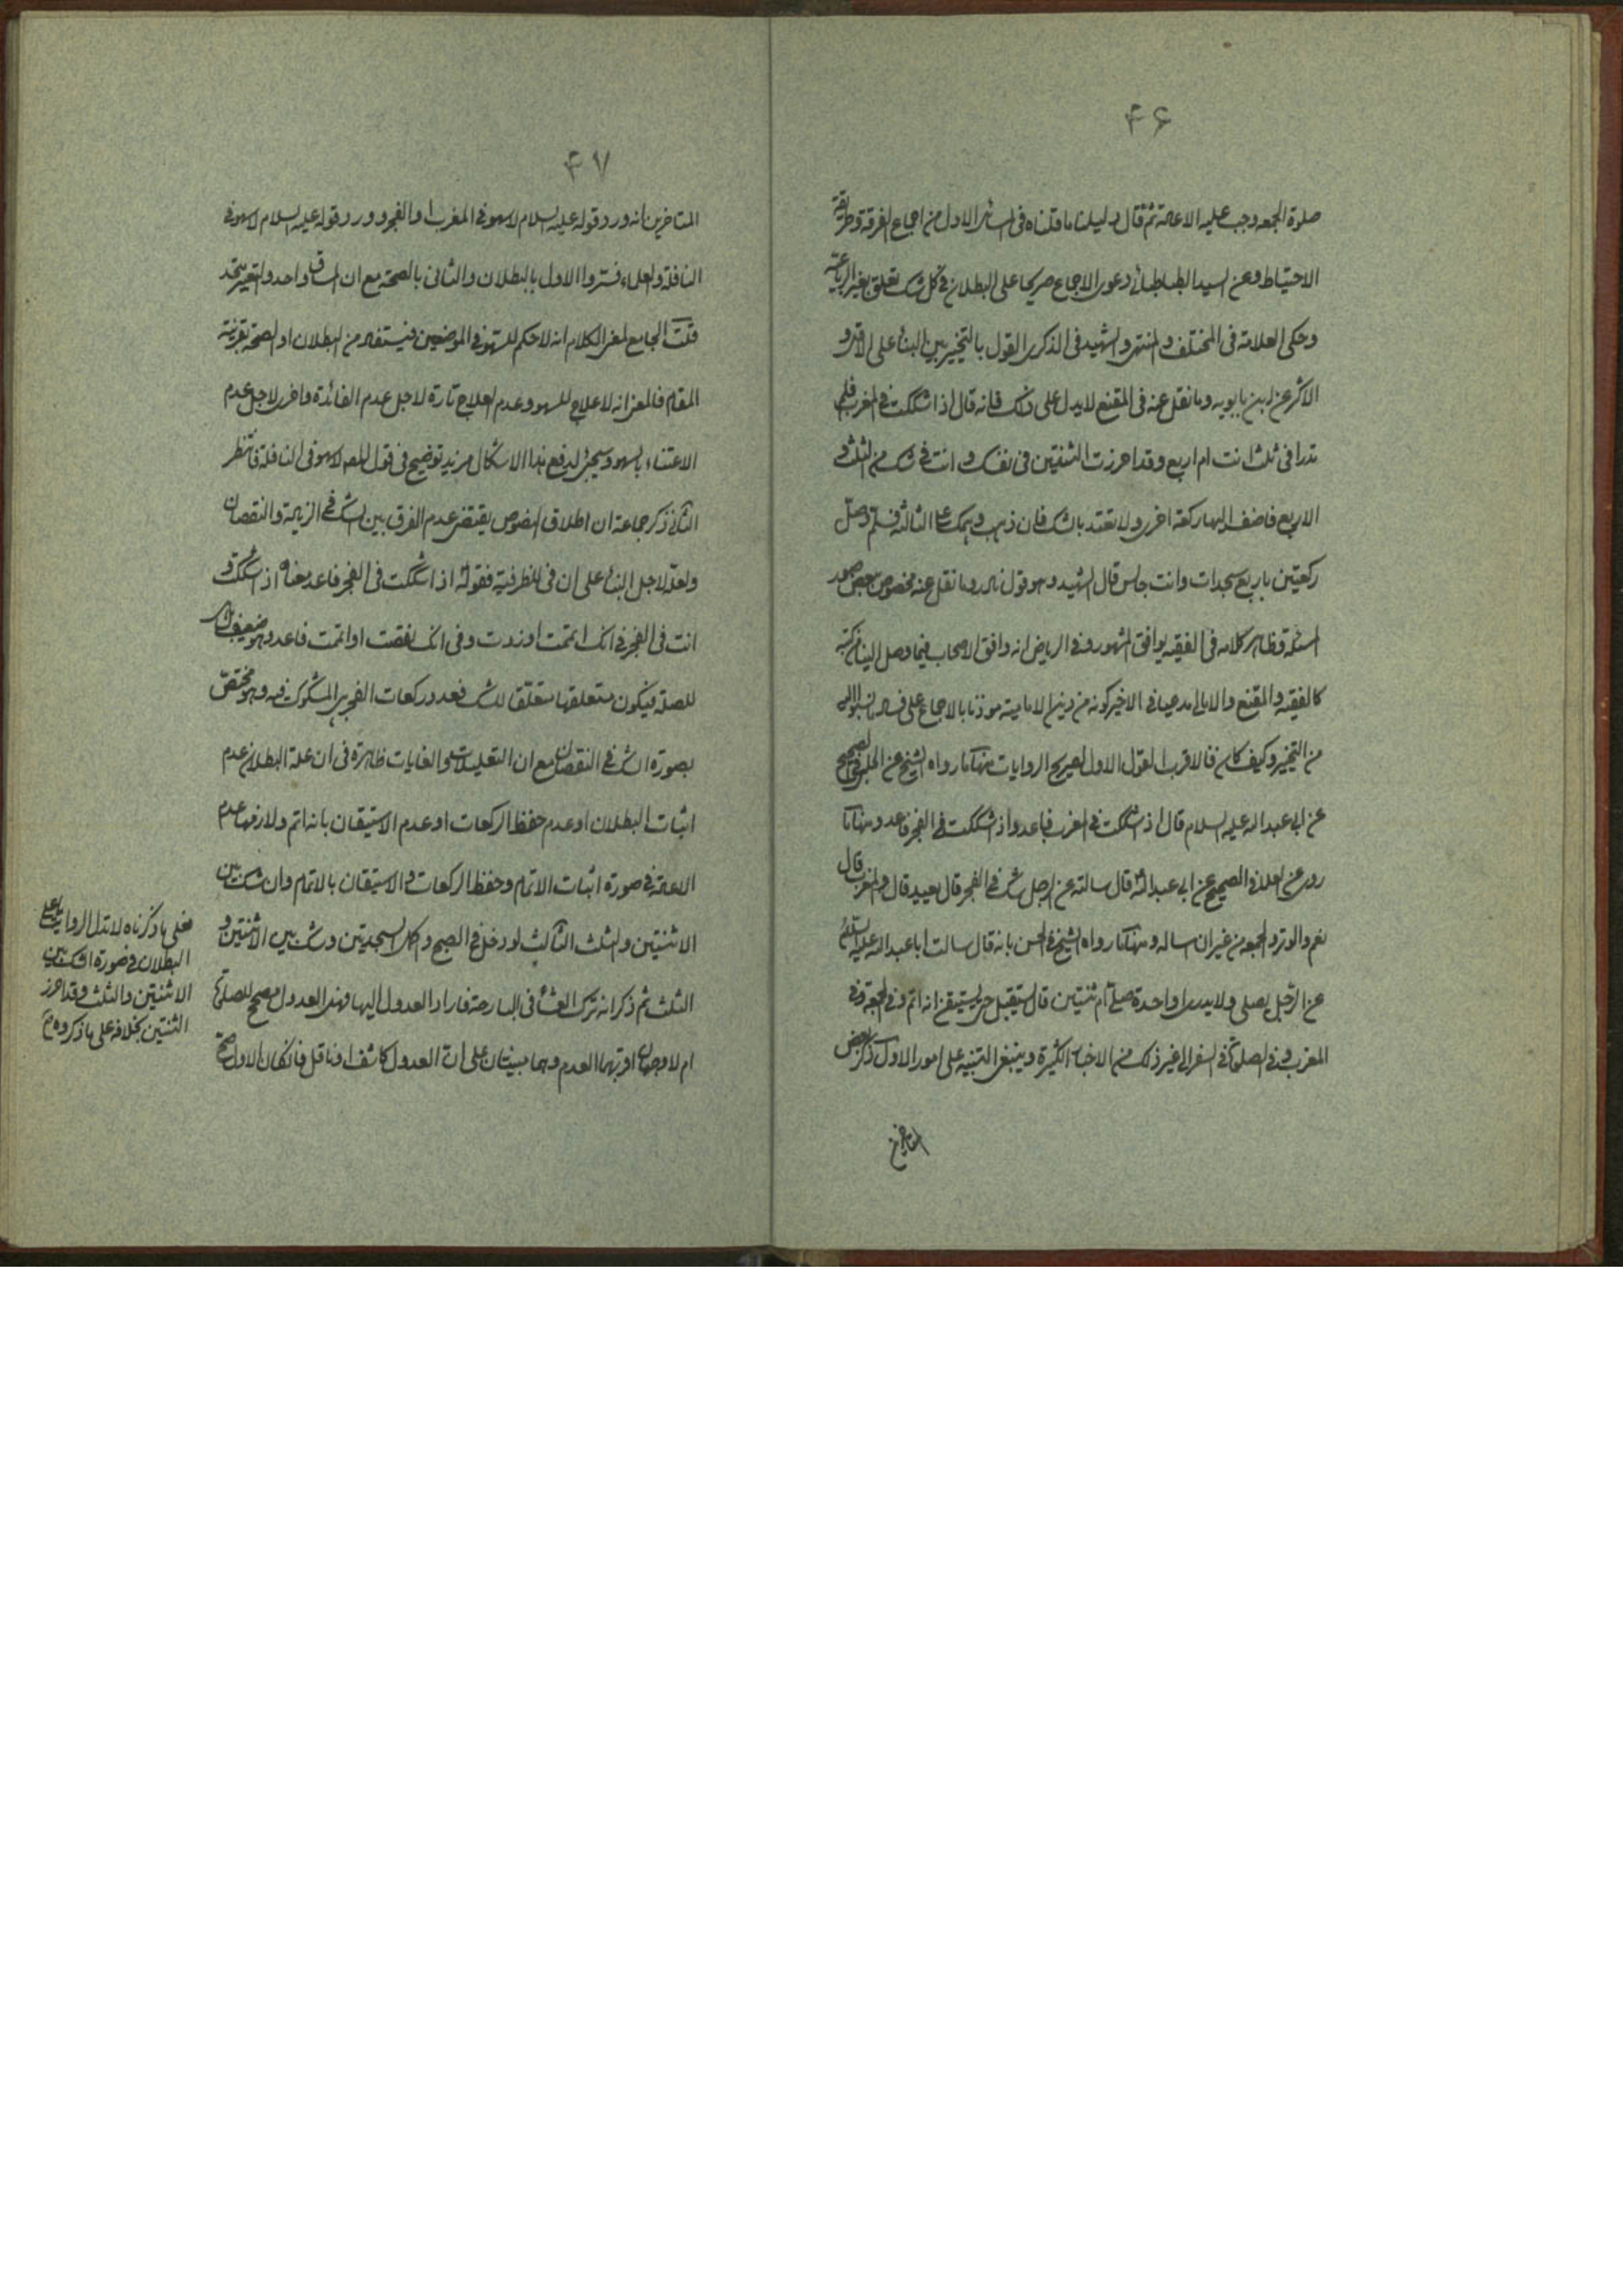 ۴۶
صلوة الجمعه وجب عليه الاعادة ثم قال دليلنا ما قلناه فى المسئلة الاولى من اجماع الفرقة وطريقة
الاحتياط وعن السيد الطباطبائى دعوى الاجماع صريحا على البطلان فى كل شك تعلق بغير الرباعية
وحكى العلامة فى المختلف والمنتهى والشهيد فى الذكرى القول بالتخيير بين البناء على الاقل و
الاكثر عن ابن بابويه وما نقل عنه فى المقنع لا يدل على ذلك فانه قال اذا شككت فى المغرب فلم
تدر افى ثلث انت ام اربع وقد احرزت الثنتين فى نفسك وانت فى شك من الثلث و
الاربع فاضف اليها ركعة اخرى ولا تعتد بالشك فان ذهب وهمك الى الثالثة فسلم وصل
ركعتين باربع سجدات وانت جالس قال الشهيد وهو قول نادر وما نقل عنه مخصوص ببعض صور
المسئلة وظاهر كلامه فى الفقيه يوافق المشهور وفى الرياض انه وافق الاصحاب فيما وصل الينا من كتبه
كالفقيه والمقنع والامالى مدعيا فى الاخير كونه من دين الامامية موذنا بالاجماع على فساد ما نسبوا اليه
من التخيير وكيف كان فالاقرب القول الاول لصريح الروايات منها ما رواه الشيخ عن الحلبى فى الصحيح
عن ابى عبد الله عليه السلام قال اذا شككت فى المغرب فاعد واذا شككت فى الفجر فاعد ومنها ما
روى عن العلا فى الصحيح عن ابى عبد الله قال سالته عن الرجل يشك فى الفجر قال يعيد قال والمغرب قال
نعم والوتر والجمعه من غير ان ساله ومنها ما رواه الشيخ فى الحسن بانه قال سالت ابا عبد الله عليه السلام
عن الرجل يصلى ولا يدرى واحدة صلى ام ثنتين قال يستقبل حتى يستيقن انه اتم وفى الجمعة وفى
المغرب وفى الصلوة فى السفر الى غير ذلك من الاخبار الكثيرة وينبغى التنبيه على امور الاول ذكر بعض
المتاخرين
۴۷
المتاخرين انه ورد قوله عليه السلام لا سهو فى المغرب والفجر وورد قوله عليه السلام لا سهو فى
النافلة والعلماء فسروا الاول بالبطلان والثانى بالصحة مع ان المساق واحد والتعبير متحد
قلت الجامع لمعنى الكلام انه لا حكم للسهو فى الموضعين فيستفاد من البطلان او الصحة بقرينة
المقام فالمعنى انه لا علاج للسهو وعدم العلاج تارة لاجل عدم الفائدة واخرى لاجل عدم
الاعتناء بالسهو وسيجئ لدفع هذا الاشكال مزيد توضيح فى قول المصه لا سهو فى النافلة فانتظر
الثانى ذكر جماعة ان اطلاق النصوص يقتضى عدم الفرق بين الشك فى الزيادة والنقصان
ولعله لاجل البناء على ان فى للظرفية فقوله اذا شككت فى الفجر فاعد معناه اذا شككت و
انت فى الفجر فى انك اتممت او زدت وفى انك نقصت او اتممت فاعد وهو ضعيف
للصلة فيكون متعلقها متعلقا للشك فعدد ركعات الفجر هى المشكوك فيه وهو مختص
بصورة الشك فى النقصان مع ان التعليلات والغايات ظاهرة فى ان علة البطلان عدم
اثبات البطلان او عدم حفظ الركعات او عدم الاستيقان بانه اتم ولازمها عدم
الاعادة فى صورة اثبات الاتمام وحفظ الركعات والاستيقان بالاتمام وان شك بين
الاثنتين والثلث الثالث لو دخل فى الصبح واكمل السجدتين وشك بين الاثنتين و
الثلث ثم ذكر انه ترك العشاء فى البارحة فاراد العدول اليها فهذا العدول مصحح للصلوة
ام لا وجهان اقربهما العدم وهما مبنيان على ان العدول كاشف او ناقل فان كان الاول صح
فعلى ما ذكرناه لا تدل الروايات على
البطلان فى صورة الشك بين
الاثنتين والثلث وقد احرز
الثنتين بخلافه على ما ذكروه